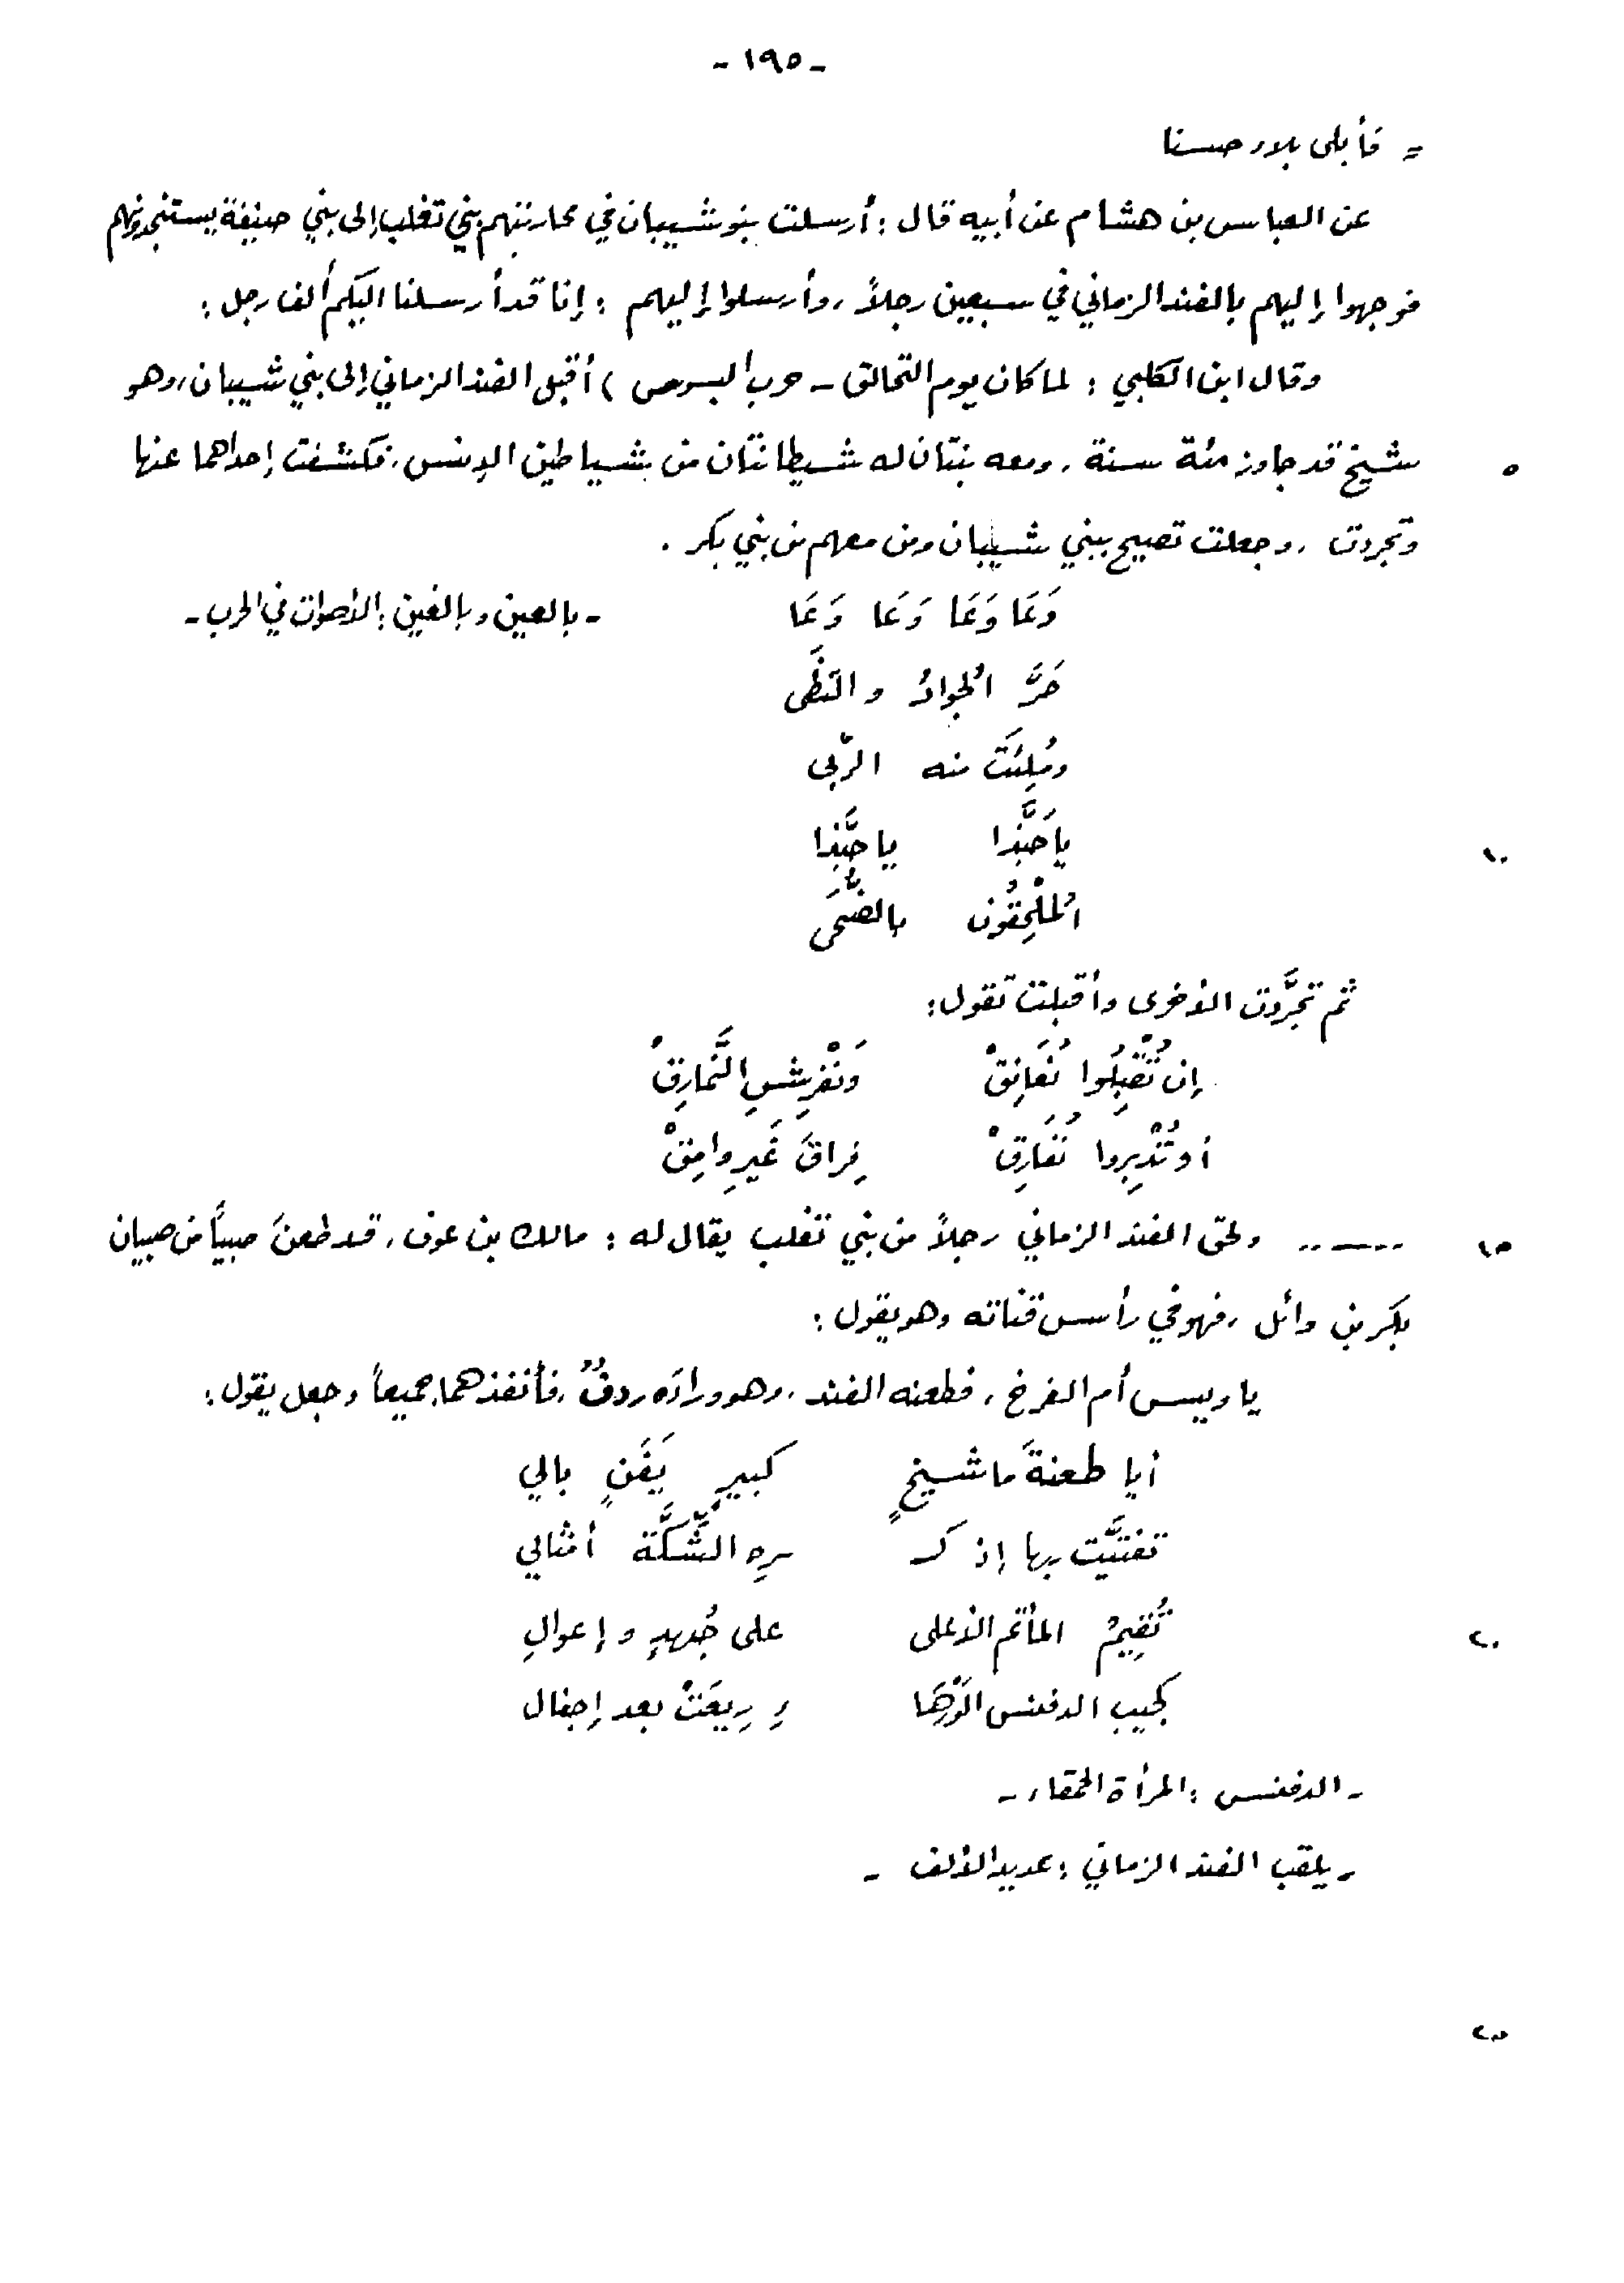 - ١٩٥ -
= فأبلى بلاء حسنا
عن العباس بن هشام عن أبيه قال : أرسلت بنو شيبان في محاربتهم بني تغلب إلى بني حنيفة يستنجدونهم
فوجهوا إليهم بالفند الزماني في سبعين رجلاً ، وأرسلوا إليهم : إنا قد أرسلنا اليكم ألف رجل :
وقال ابن الكلبي : لما كان يوم التحالق - حرب البسوس ) أقبل الفند الزماني إلى بني شيبان ، وهو
٥ شيخ قد جاوز مئة سنة ، ومعه بنتان له شيطانتان من شياطين الإنس ، فكشفت إحداهما عنها
وتجردت ، وجعلت تصيح ببني شيبان ومن معهم من بني بكر .
وَعَا وَعَا وَعَا وَعَا - بالعين وبالغين : الأصوات في الحرب -
حَرَّ الجوادُ والتَظَى
ومُلِئَتْ منه الرّبى
١٠ يا حَبَّذا يا حبَّذا
المُلْحِقُون بالضُّحَى
ثم تجرَّدت الأخرى وأقبلت تقول :
إن تُقْبِلُوا نُعَانِقْ وَنَفْرِشِ النَّمارِقْ
أو تُدْبِروا نُفَارِقْ فِراقَ غَيرِ وامِقْ
١٥ ..ــ... ولحق الفند الزماني رجلاً من بني تغلب يقال له : مالك بن عوف ، قد طعنَ صبيّاً من صبيان
بكر بن وائل ، فهو في رأس قناته وهو يقول :
يا ويس أم الفرخ ، فطعنه الفند ، وهو وراءَه ردفٌ ، فأنفذهما جميعاً وجعل يقول :
أيا طعنةَ ما شيخٍ كبيرٍ يَفَنٍ بالي
تفتيَّت بها إذ كـ ـرِه الشِّكَّة أمثالي
٢٠ تُقِيمُ المأتم الأعلى على جُهدٍ وإعوالِ
كجيبِ الدفنس الوَرْهَا ءِ رِيعَتْ بعد إجفال
- الدفنس : المرأة الحمقاء -
- يلقب الفند الزماني : عديد الألف -
٢٥